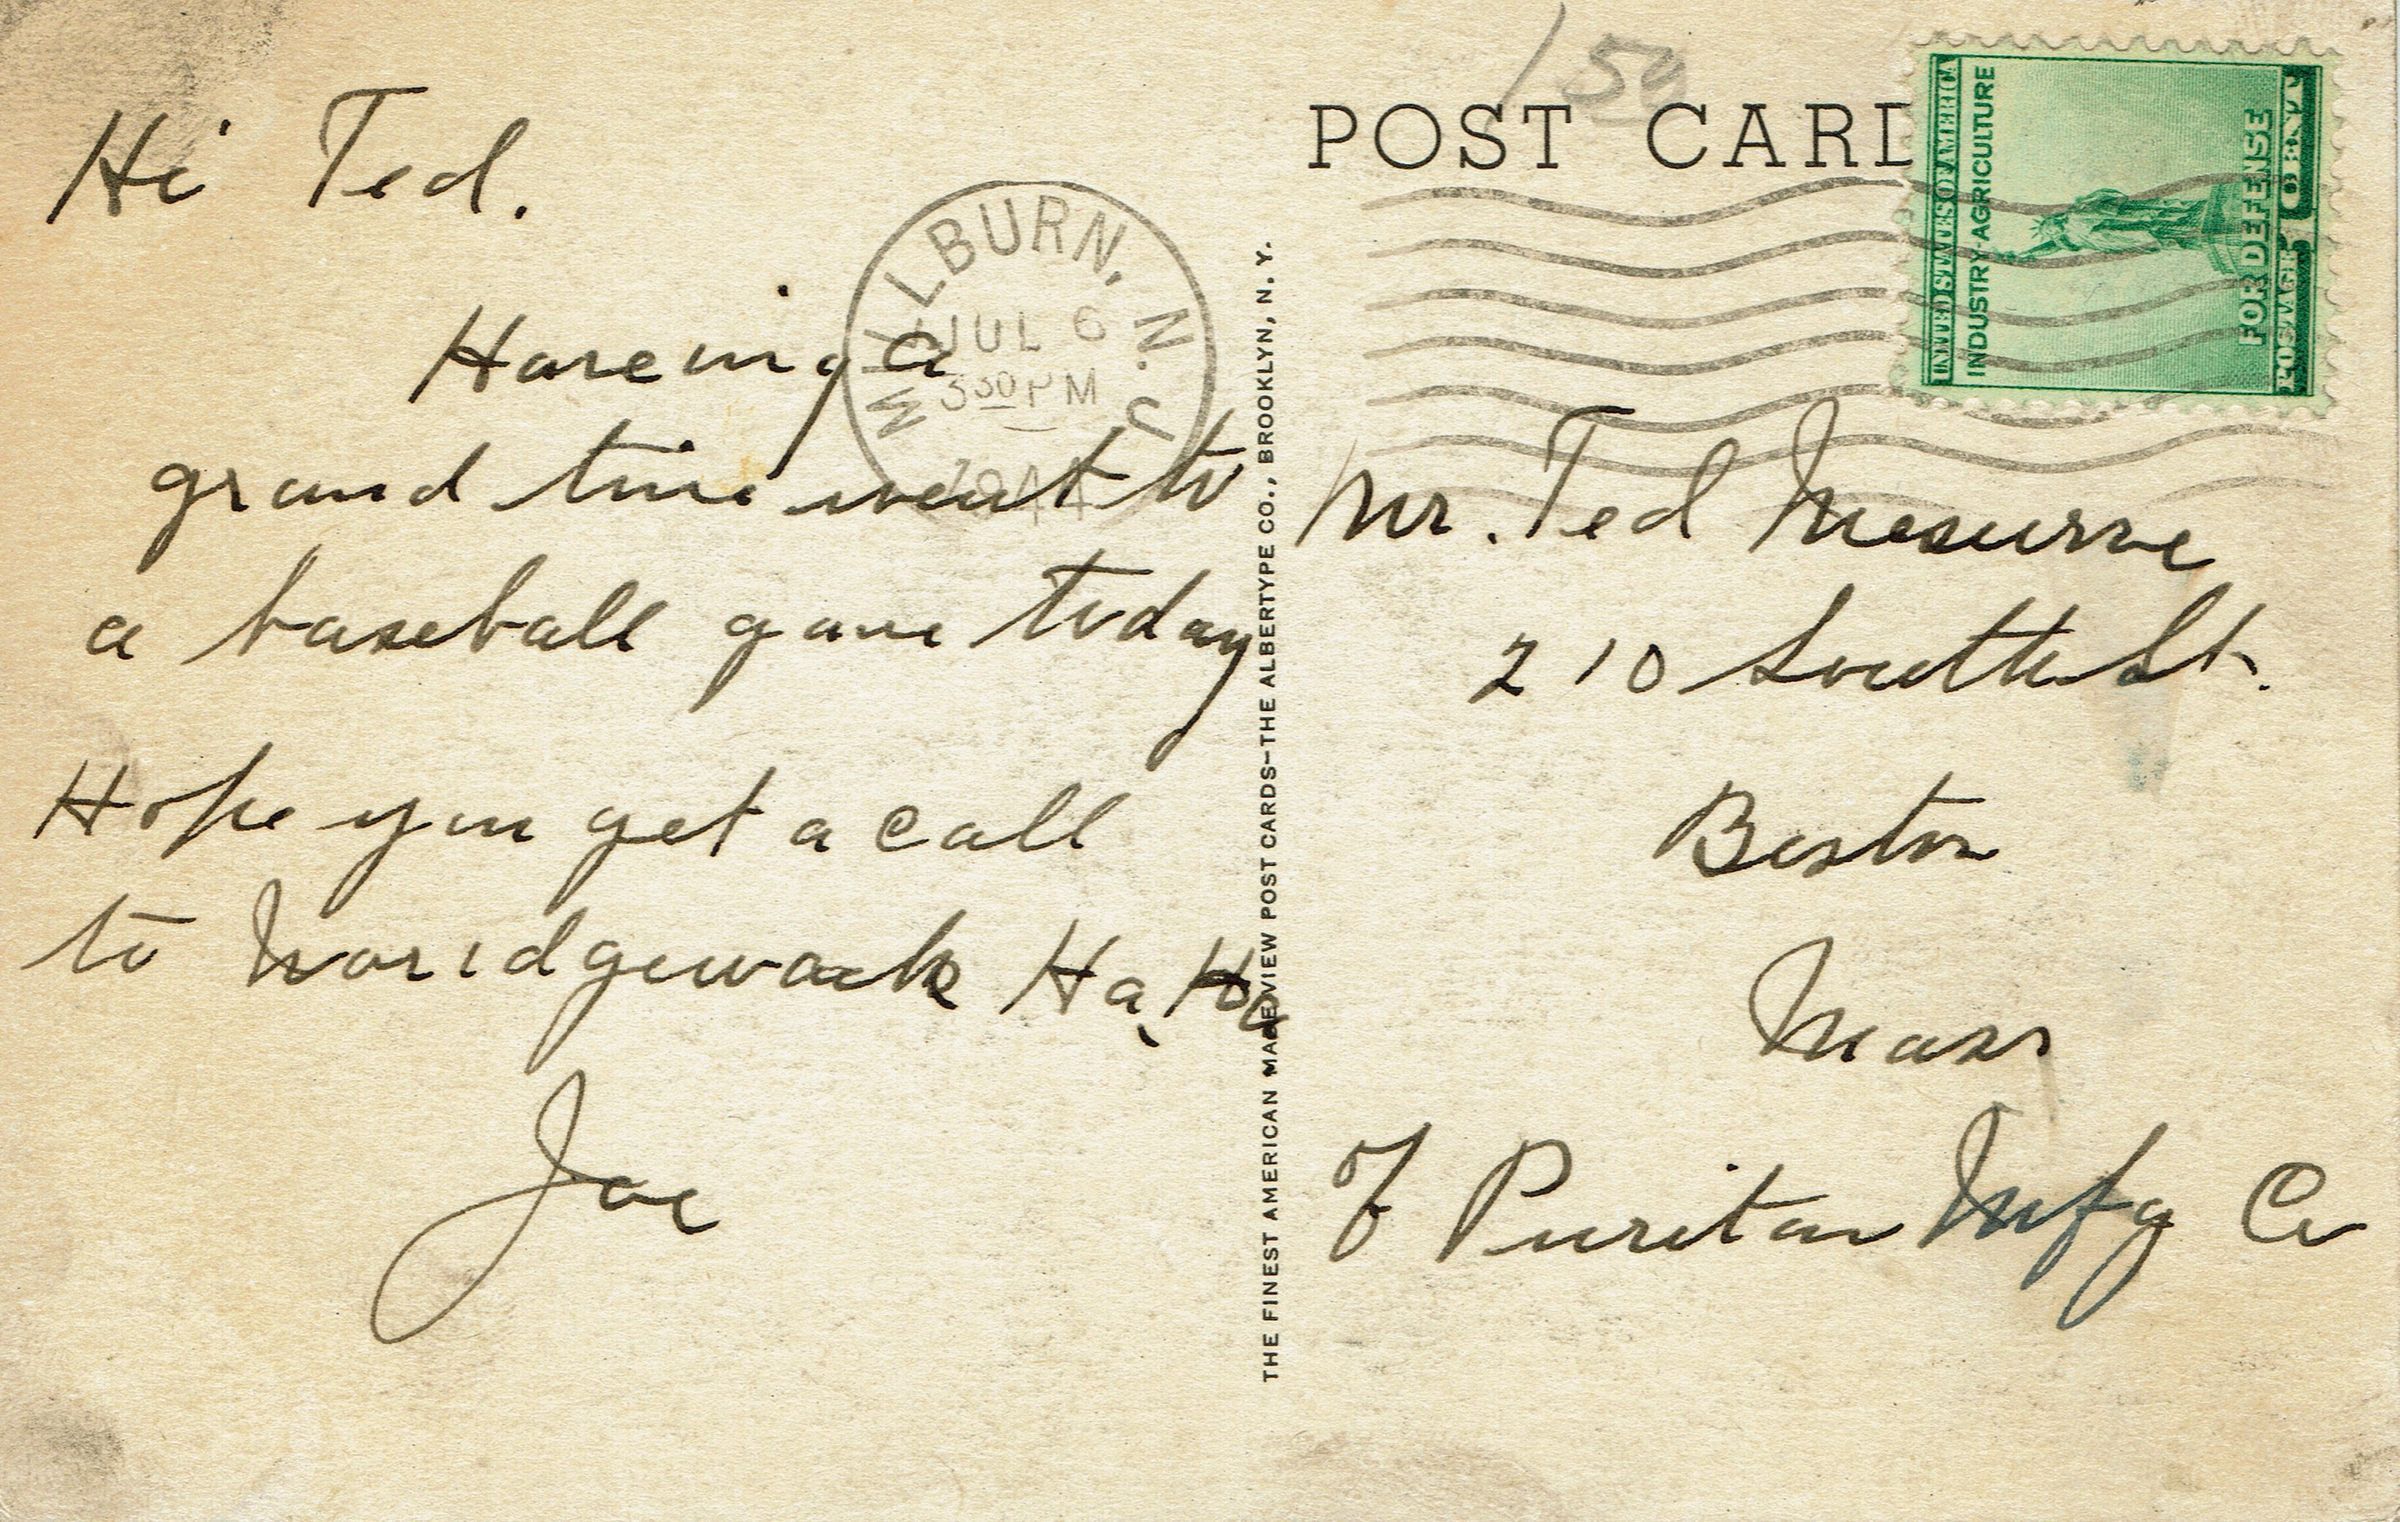 Hi Ted.
Haveing a
grand time went to
a baseball game today
Hope you get a call
to Ha, Ha
Joe
MILLBURN, N.J.
JUL 6
3 30 PM
1944
THE FINEST AMERICAN MADE VIEW POST CARDS—THE ALBERTYPE CO., BROOKLYN, N. Y.
150
POST CARD
UNITED STATES OF AMERICA
INDUSTRY·AGRICULTURE
FOR DEFENSE
POSTAGE 1 CENT
Mr. Ted
210 South St.
Boston
Mass
% Puritan Mfg Co